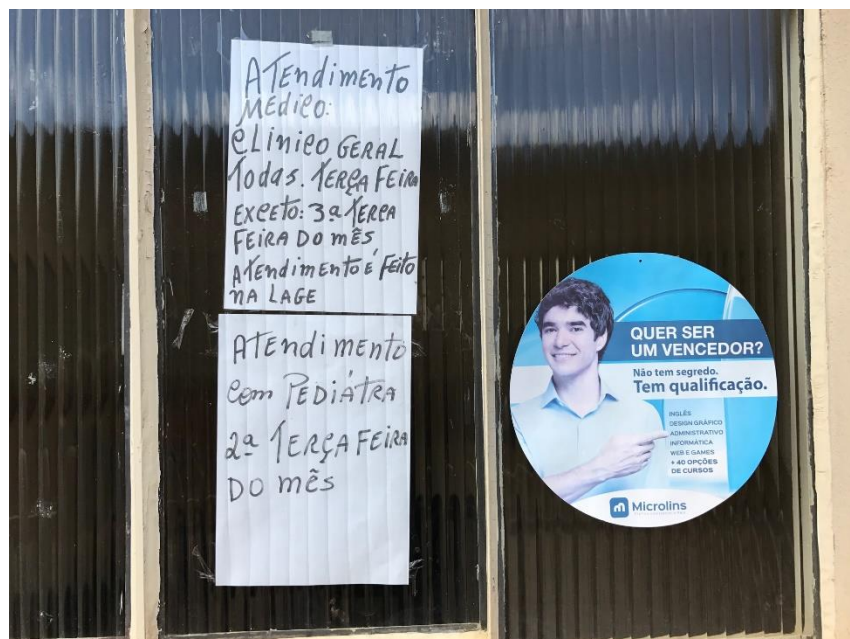 ATENdIMENTO
MÉdICO:
CLÍNICO GERAL
TOdAS. TERÇA FEIRA
EXCETO: 3ª TERCA
FEIRA DO MÊS
ATENdIMENTO É FEITO
NA LAGE
ATENdIMENTO
COM PEDIÁTRA
2ª TERÇA FEIRA
DO MÊS
QUER SER
UM VENCEDOR?
Não tem segredo.
Tem qualificação.
INGLÊS
DESIGN GRÁFICO
ADMINISTRATIVO
INFORMÁTICA
WEB E GAMES
+ 40 OPÇÕES
DE CURSOS
Microlins